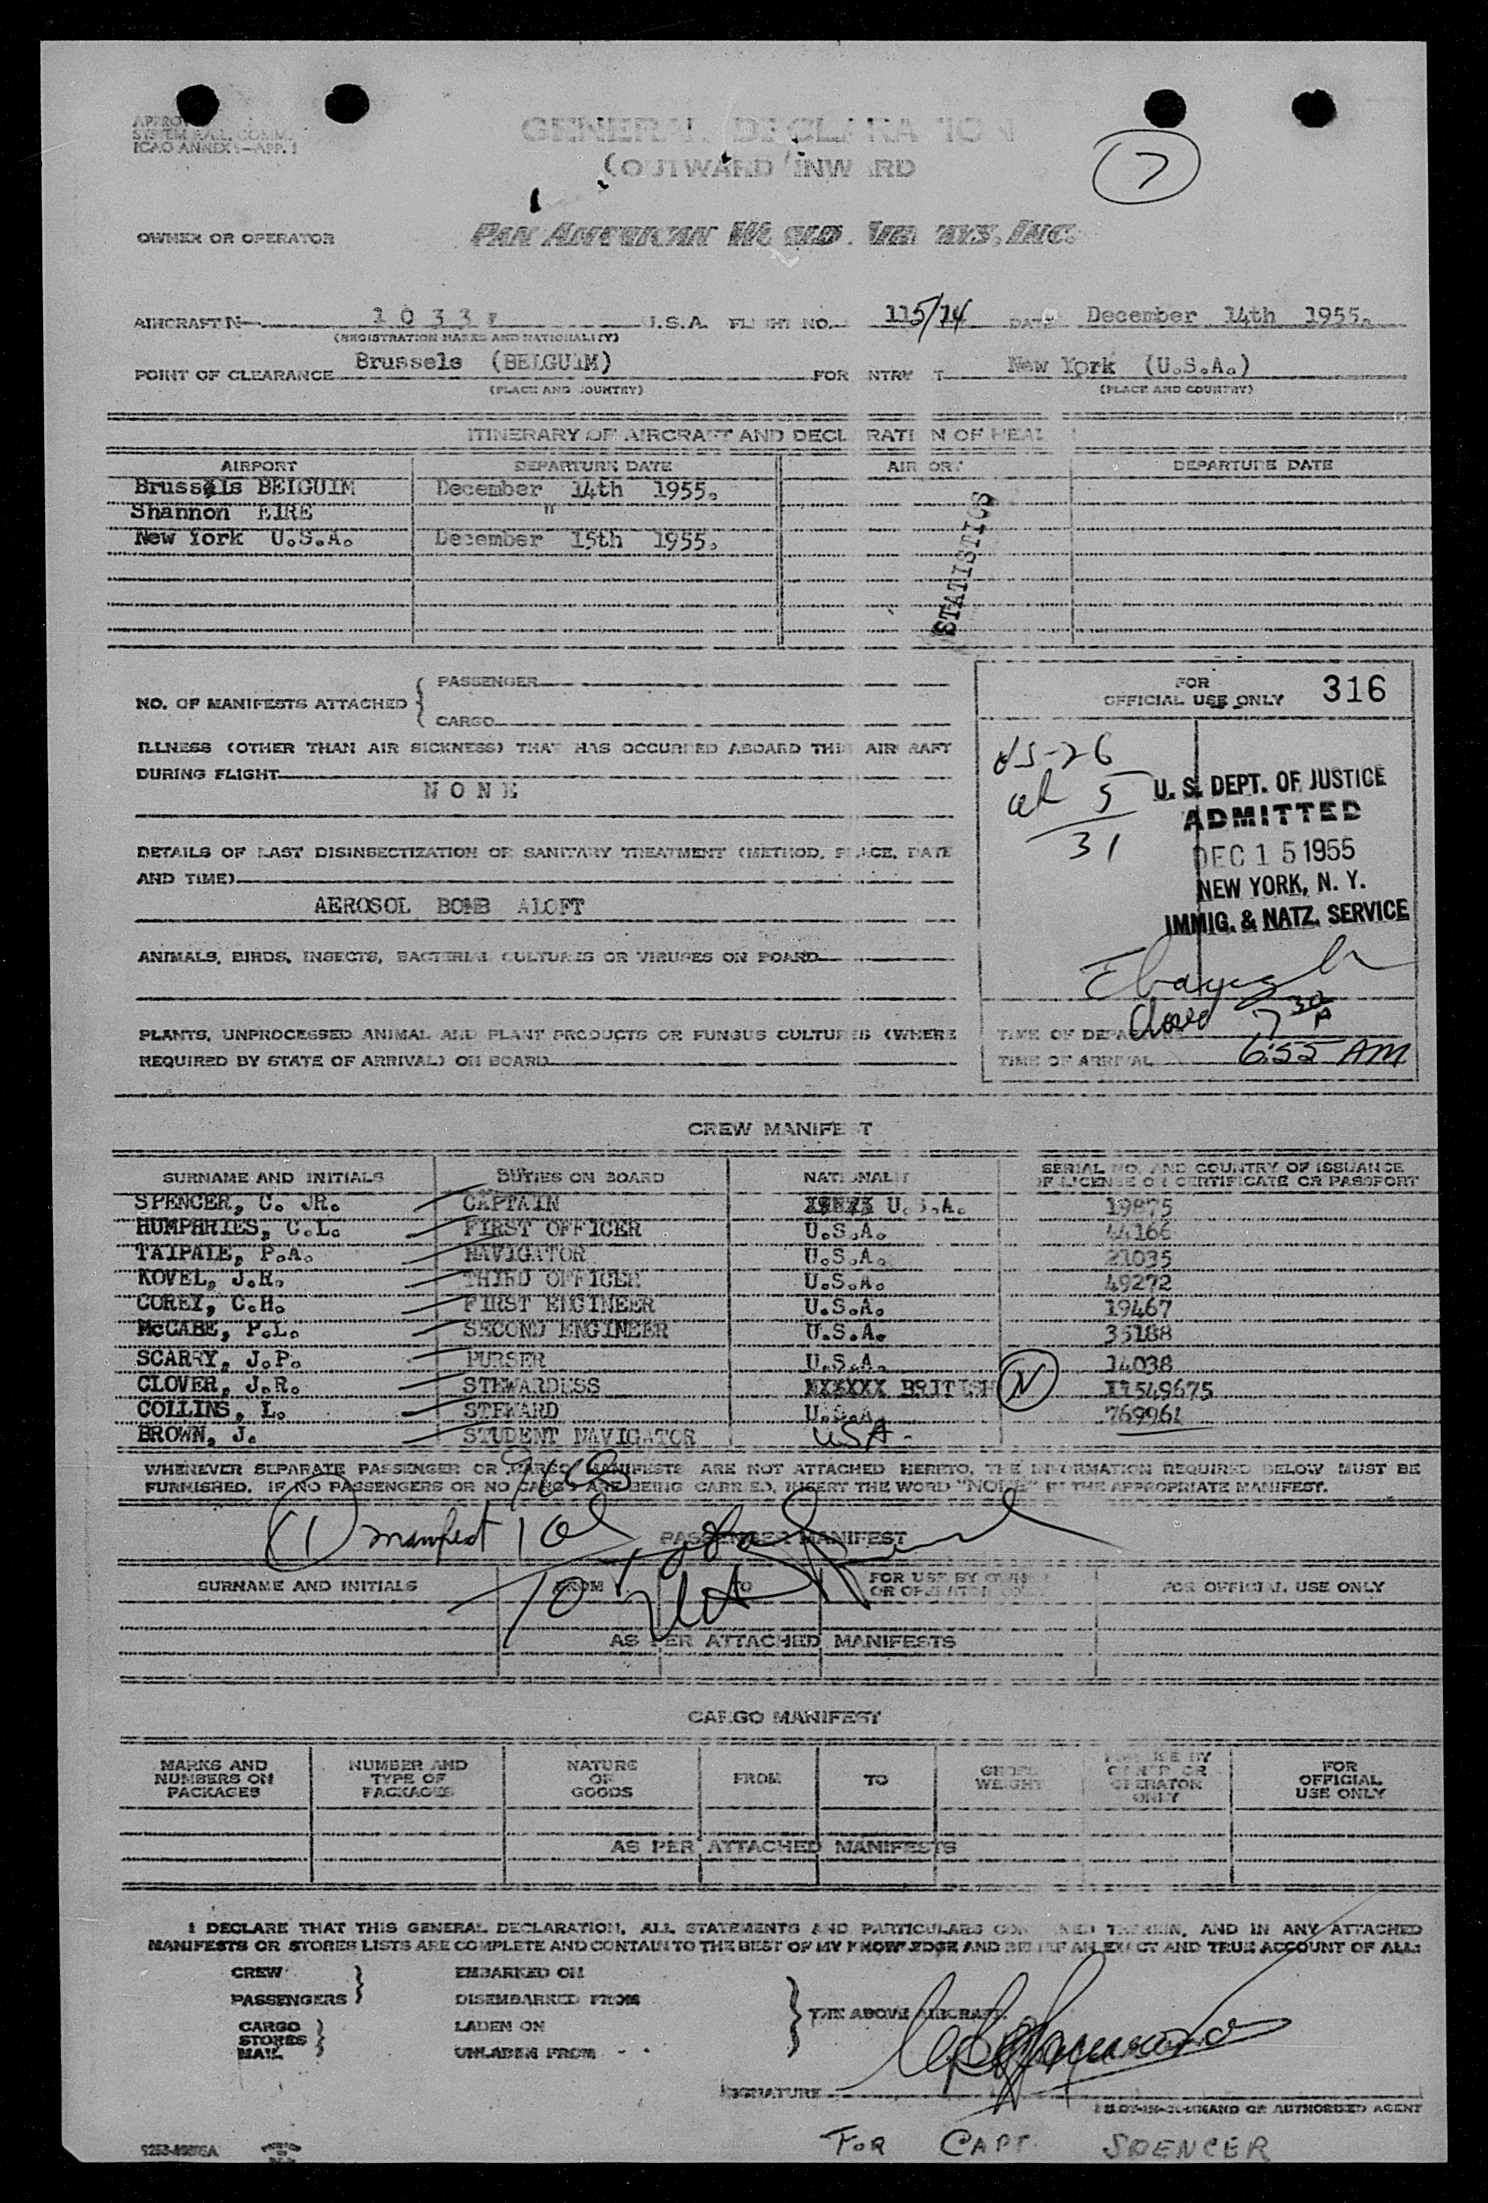 GENERAL DECLARATION
(OUTWARD/INWARD
7
OWNER OR OPERATOR PAN AMERICAN WORLD AIRWAYS, INC.
AIRCRAFT N 1033 U.S.A. FLIGHT NO. 115/14 DATE December 14th 1955.
(REGISTRATION MARKS AND NATIONALITY)
POINT OF CLEARANCE Brussels (BELGUIM) FOR ENTRY AT New York (U.S.A.)
(PLACE AND COUNTRY) (PLACE AND COUNTRY)
ITINERARY OF AIRCRAFT AND DECLARATION OF HEALTH
AIRPORT DEPARTURE DATE AIRPORT DEPARTURE DATE
Brussels BELGUIM December 14th 1955.
Shannon EIRE "
New York U.S.A. December 15th 1955.
STATISTICS
NO. OF MANIFESTS ATTACHED { PASSENGER
CARGO
FOR OFFICIAL USE ONLY 316
ILLNESS (OTHER THAN AIR SICKNESS) THAT HAS OCCURRED ABOARD THIS AIRCRAFT
DURING FLIGHT
NONE
26
5
31
U. S. DEPT. OF JUSTICE
ADMITTED
DEC 15 1955
NEW YORK, N. Y.
IMMIG. & NATZ. SERVICE
DETAILS OF LAST DISINSECTIZATION OR SANITARY TREATMENT (METHOD, PLACE, DATE
AND TIME)
AEROSOL BOMB ALOFT
ANIMALS, BIRDS, INSECTS, BACTERIAL CULTURES OR VIRUSES ON BOARD
PLANTS, UNPROCESSED ANIMAL AND PLANT PRODUCTS OR FUNGUS CULTURES (WHERE
REQUIRED BY STATE OF ARRIVAL) ON BOARD
TIME OF DEPARTURE Closed 7 30 A
TIME OF ARRIVAL 6:55 AM
CREW MANIFEST
SURNAME AND INITIALS DUTIES ON BOARD NATIONALITY SERIAL NO. AND COUNTRY OF ISSUANCE
OF LICENSE OR CERTIFICATE OR PASSPORT
SPENCER, C. JR. CAPTAIN U.S.A. 19875
HUMPHRIES, C.L. FIRST OFFICER U.S.A. 44166
TAIPALE, P.A. NAVIGATOR U.S.A. 21035
KOVEL, J.R. THIRD OFFICER U.S.A. 49272
COREY, C.H. FIRST ENGINEER U.S.A. 19467
McCABE, P.L. SECOND ENGINEER U.S.A. 35188
SCARRY, J.P. PURSER U.S.A. 14038
CLOVER, J.R. STEWARDESS XXXXXX BRITISH N 11549675
COLLINS, L. STEWARD U.S.A. 769961
BROWN, J. STUDENT NAVIGATOR USA-
WHENEVER SEPARATE PASSENGER OR CARGO MANIFESTS ARE NOT ATTACHED HERETO, THE INFORMATION REQUIRED BELOW MUST BE
FURNISHED. IF NO PASSENGERS OR NO CARGO ARE BEING CARRIED, INSERT THE WORD "NONE" IN THE APPROPRIATE MANIFEST.
(1) manifest
PASSENGER MANIFEST
SURNAME AND INITIALS FROM TO FOR USE BY OWNER
OR OPERATOR ONLY FOR OFFICIAL USE ONLY
AS PER ATTACHED MANIFESTS
CARGO MANIFEST
MARKS AND NUMBERS ON PACKAGES NUMBER AND TYPE OF PACKAGES NATURE OF GOODS FROM TO GROSS WEIGHT FOR USE BY OWNER OR OPERATOR ONLY FOR OFFICIAL USE ONLY
AS PER ATTACHED MANIFESTS
I DECLARE THAT THIS GENERAL DECLARATION, ALL STATEMENTS AND PARTICULARS CONTAINED THEREIN, AND IN ANY ATTACHED
MANIFESTS OR STORES LISTS ARE COMPLETE AND CONTAIN TO THE BEST OF MY KNOWLEDGE AND BELIEF AN EXACT AND TRUE ACCOUNT OF ALL:
CREW EMBARKED ON
PASSENGERS DISEMBARKED FROM
THE ABOVE AIRCRAFT
CARGO LADEN ON
STORES
MAIL UNLADEN FROM
SIGNATURE
PILOT-IN-COMMAND OR AUTHORIZED AGENT
FOR CAPT. SPENCER